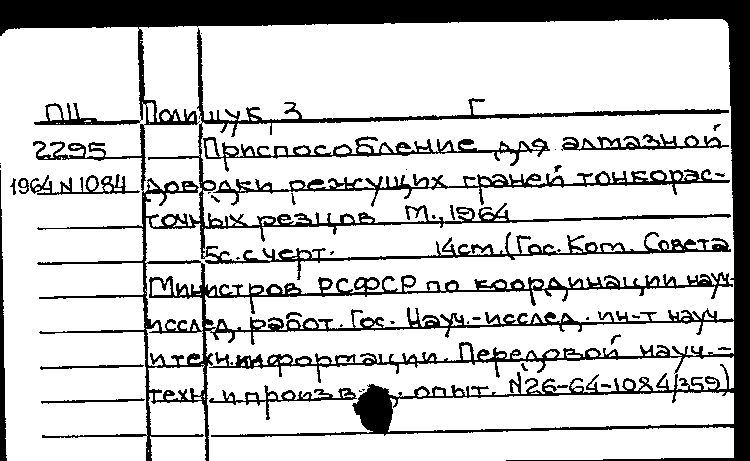 ПЦ Полищук, З Г
2295 Приспособление для алмазной
1964 N 1084 доводки режущих граней тонкорас-
точных резцов М., 1964
5с. с черт. 14см. (Гос. Ком. Совета
Министров РСФСР по координации науч-
исслед. работ. Гос. Науч.-исслед. ин-т науч
и техн. информации. Передовой науч.-
техн. и произв. опыт. N26-64-1084/359)